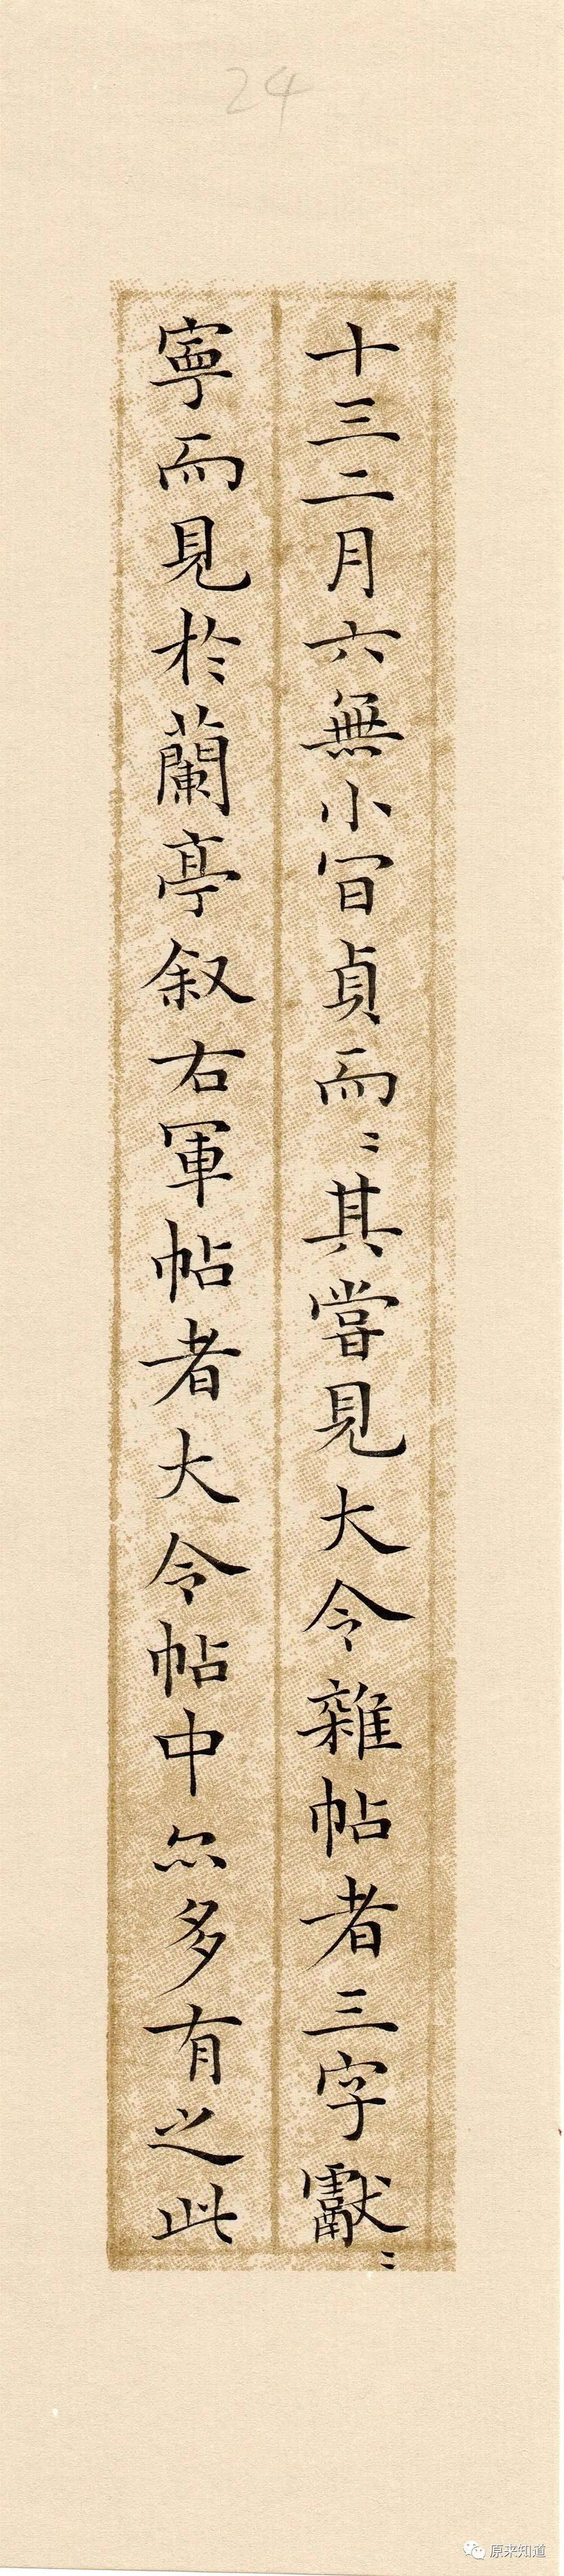 24
十三二月六無小㝍貞而〻其嘗見大令雜帖者三字獻〻
寧而見於蘭亭叙右軍帖者大令帖中尔多有之此
原来知道